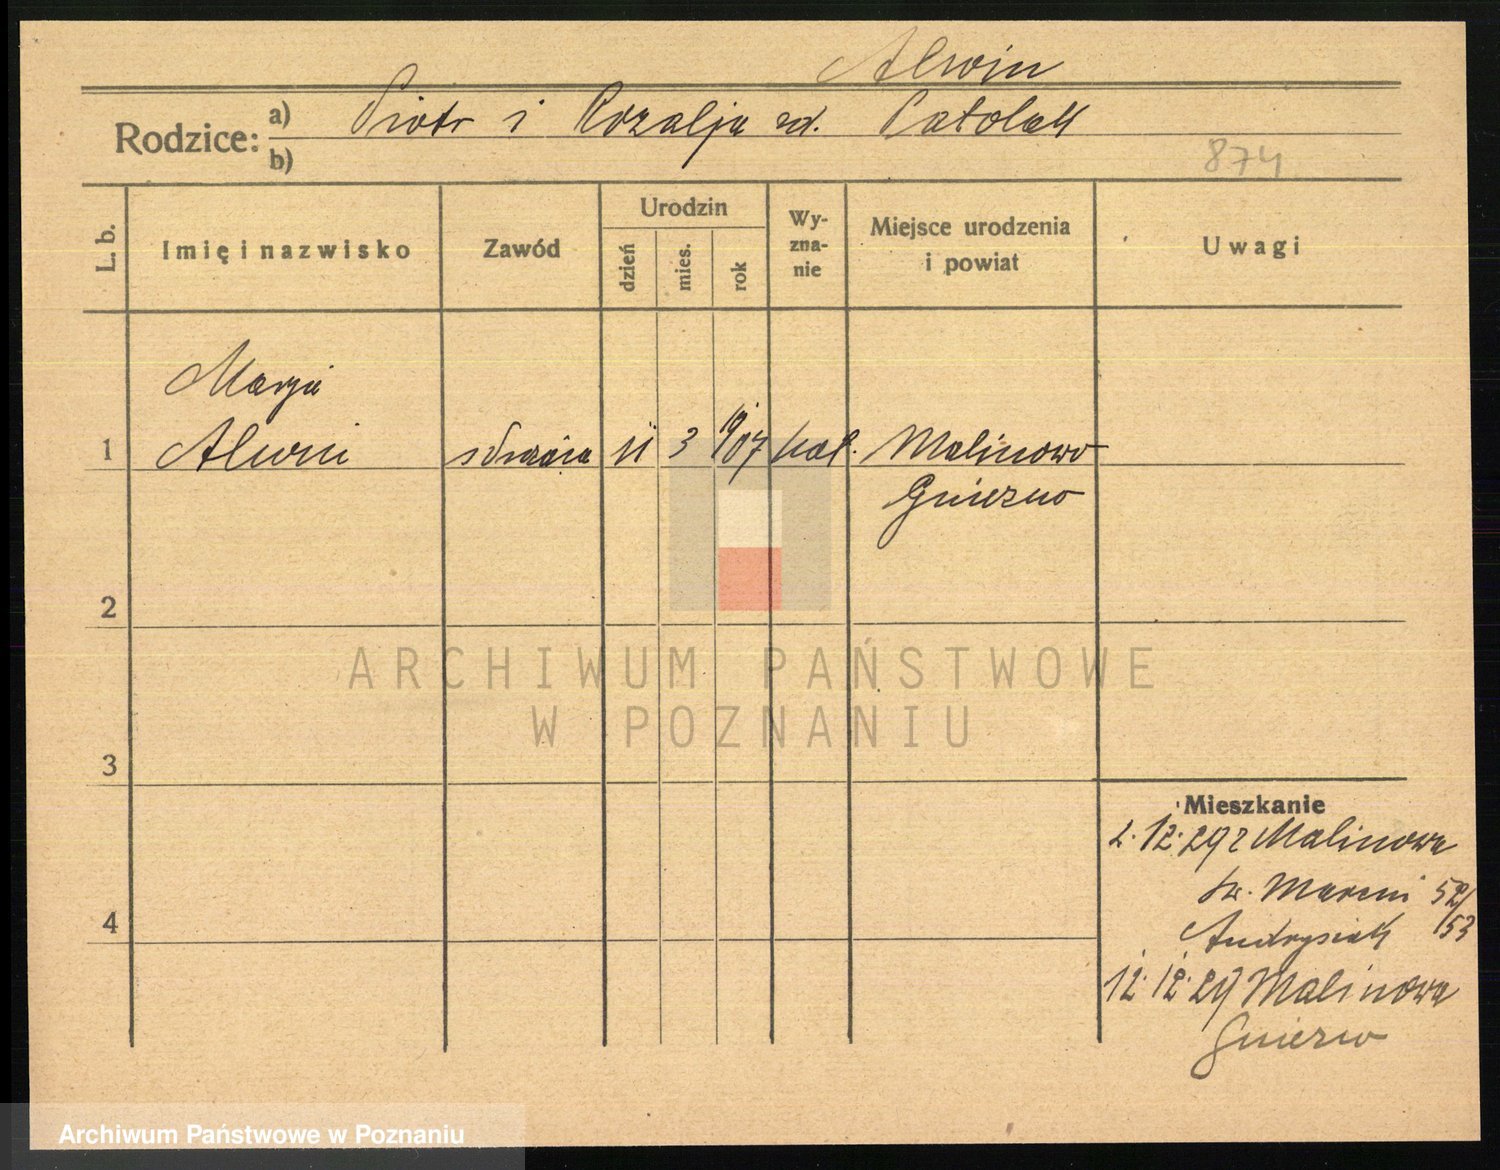 Alwin
Rodzice: a) Piotr i Rozalja zd. Patolak
b)
874
L. b.
Imię i nazwisko
Zawód
Urodzin
dzień
mies.
rok
Wy-
zna-
nie
Miejsce urodzenia
i powiat
Uwagi
Marja
1 Alwin 11 3 1907 kat. Malinowo
Gniezno
2
ARCHIWUM PAŃSTWOWE
W POZNANIU
3
Mieszkanie
2.12.29 z Malinowa
św. Marcin 52/53
Andrysiak
4
12.12.29 Malinowa
Gniezno
Archiwum Państwowe w Poznaniu